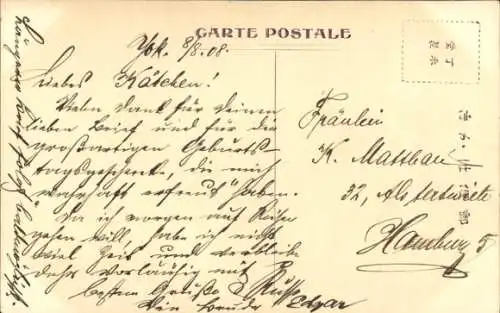 CARTE POSTALE
Yok. 8/8.08.
Liebes Kätchen!
Vielen Dank für Deinen
lieben Brief und für die
großartigen Geburts
tagsgeschenke, die mich
wahrhaft erfreut haben.
Da ich morgen auf Reisen
gehen will, habe ich nicht
viel Zeit und verbleibe
daher vorläufig mit
besten Grüße & Kuss
Dein Bruder Edgar
Längerer Brief folgt
Fräulein
K. Matthau
32, Alsterweite
Hamburg 5